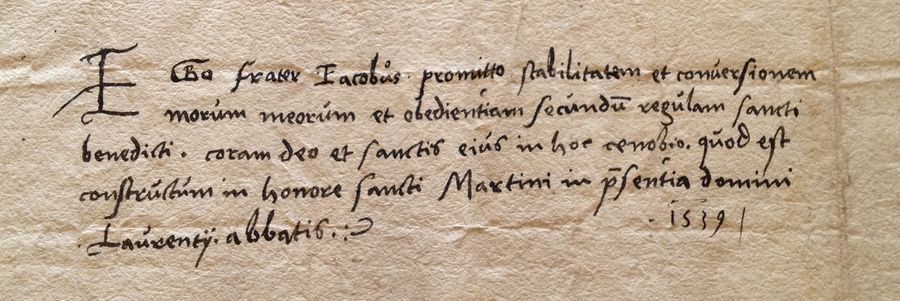 EGo frater Iacobus promitto stabilitatem et conversionem
morum meorum et obedientiam secundū regulam sancti
benedicti. coram deo et sanctis eius in hoc cenobio. quod est
constructum in honore sancti Martini in p̄sentia domini
. Laurentij. abbatis. :
. 1539 /